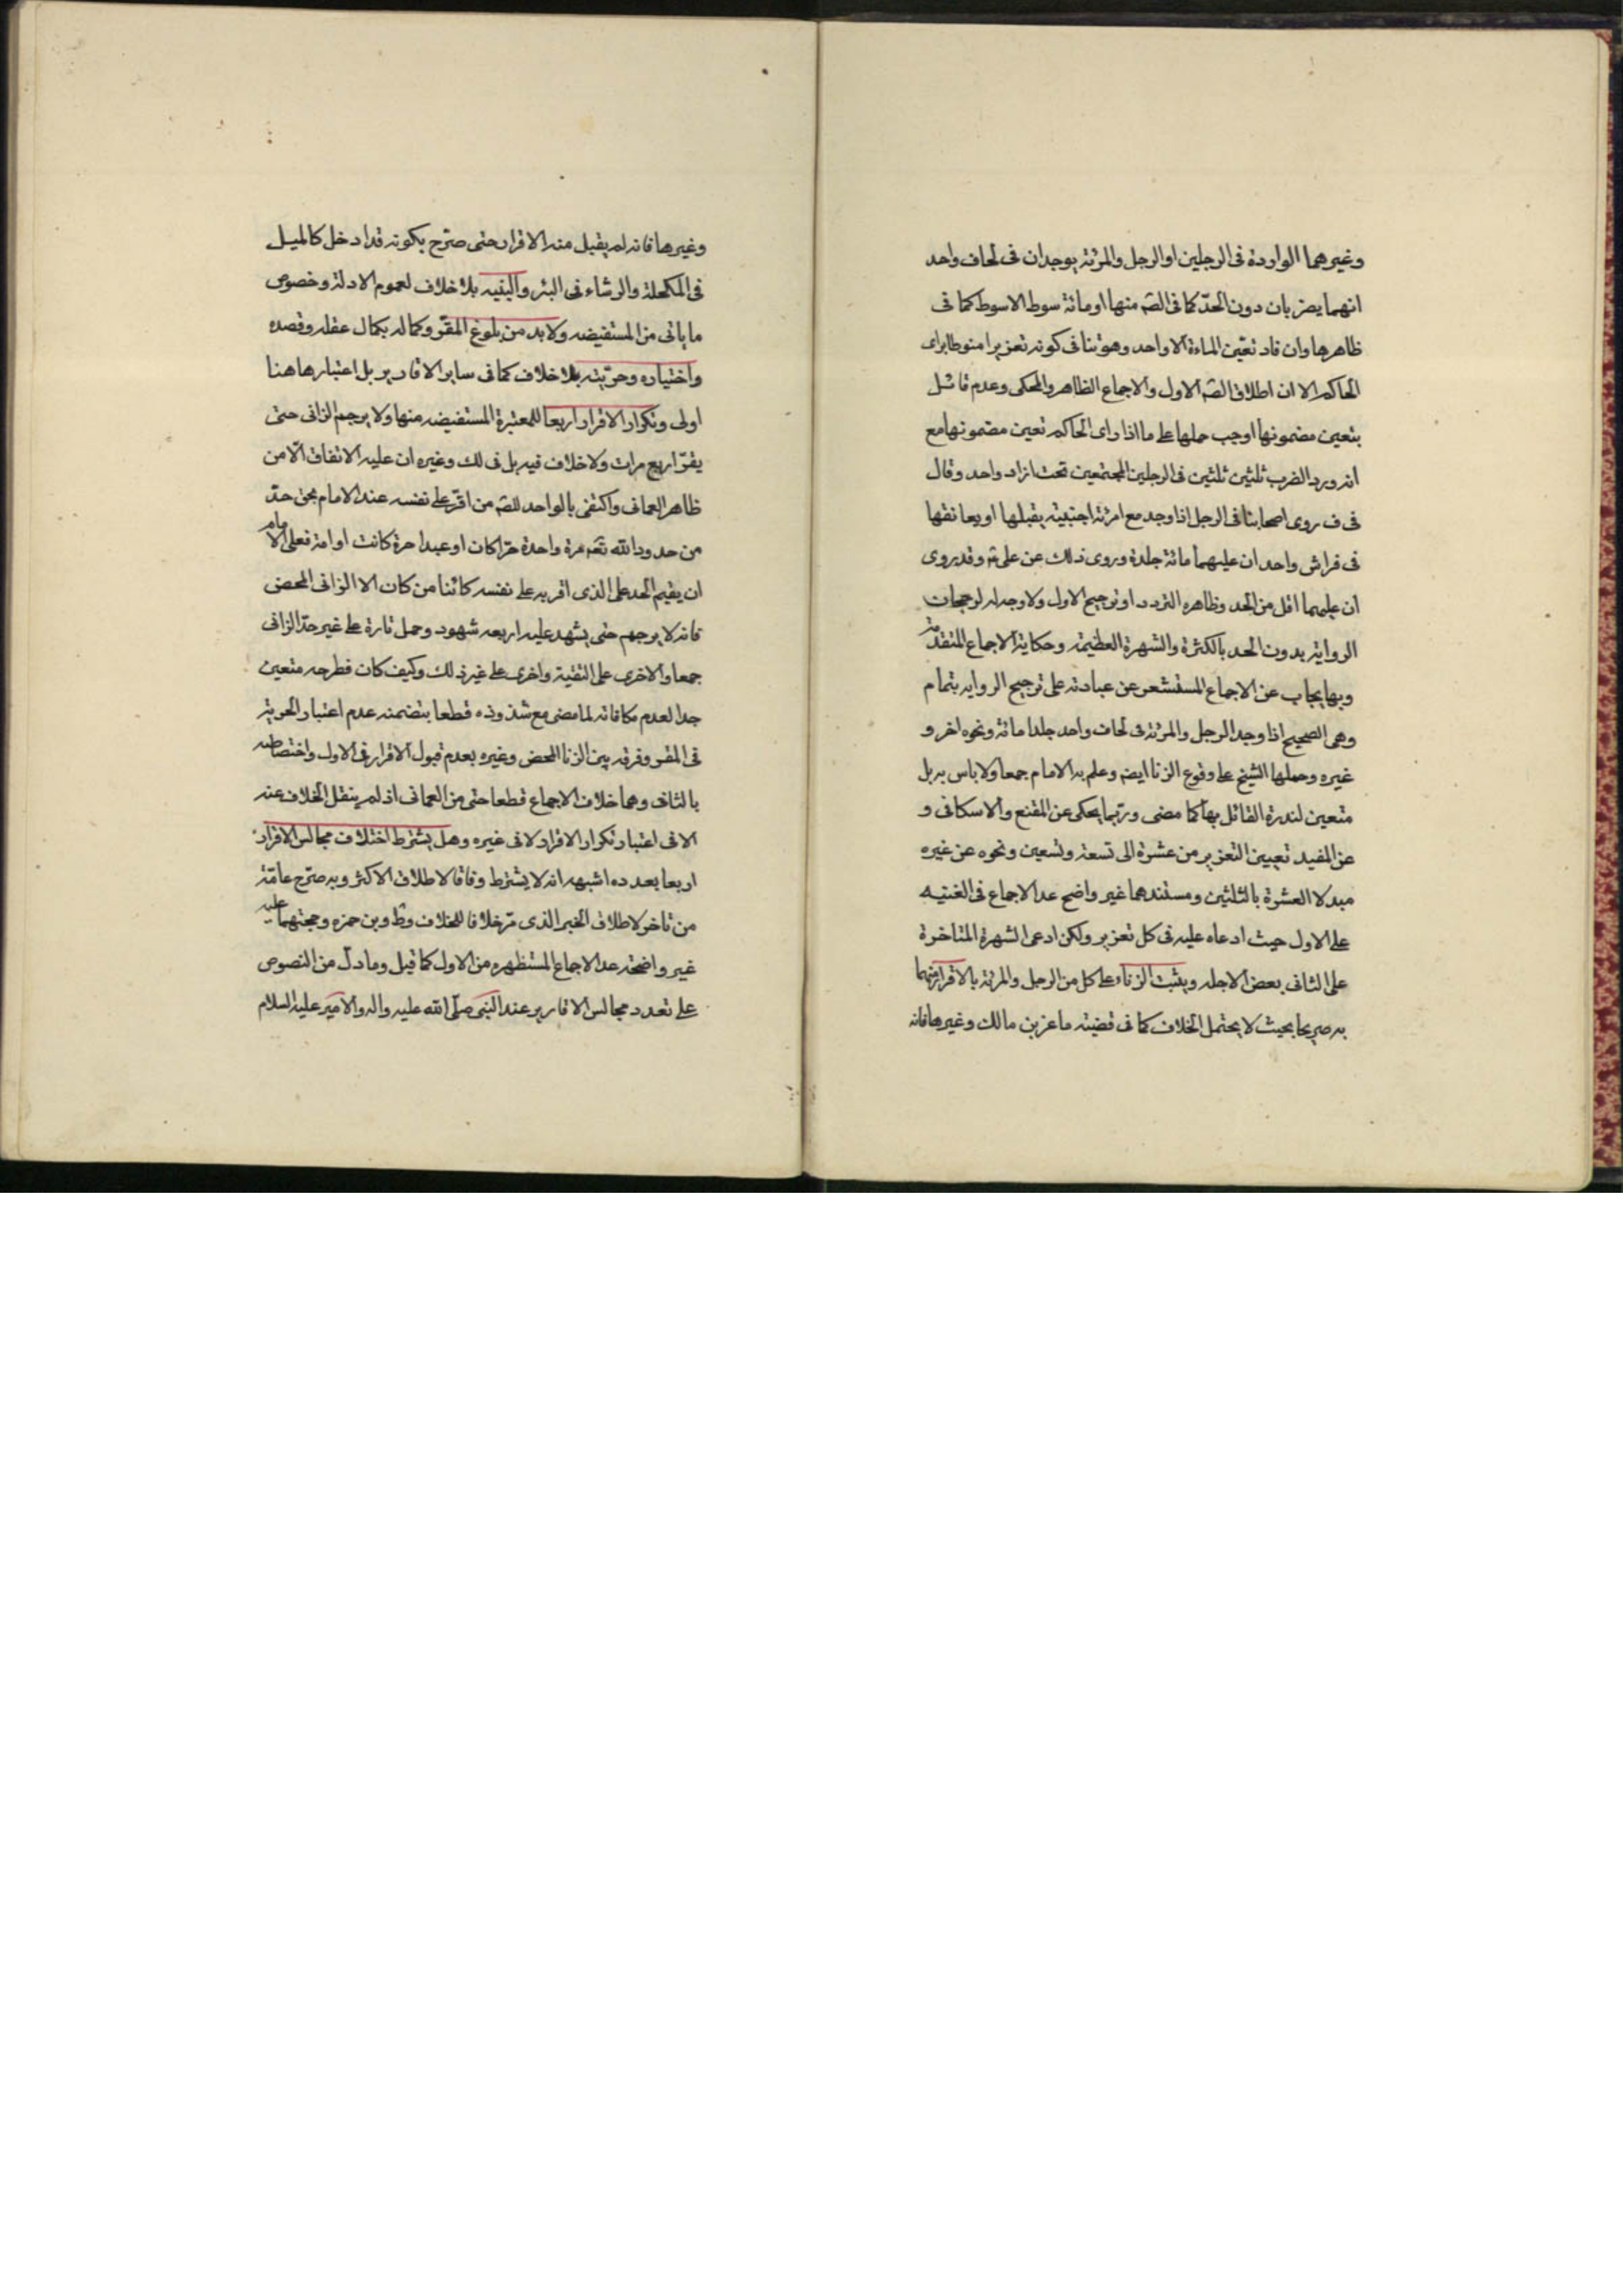 وغيرهما الواردة فى الرجلين او الرجل والمرئة يوجدان فى لحاف واحد
انهما يضربان دون الحدّ كما فى الصّه منها او مائة سوط الا سوط كما فى
ظاهرها وان فاد تعيّن الماءة الا واحد وهو ينافى كونه تعزيرا منوطا براى
الحاكم الا ان اطلاق الصّه الاول والاجماع الظاهر والمحكى وعدم قائل
بتعين مضمونها اوجب حملها على ما اذا راى الحاكم تعين مضمونها مع
انه ورد الضرب ثلثين ثلثين فى الرجلين المجتمعين تحت ازار واحد وقال
فى ف روى اصحابنا فى الرجل اذا وجد مع امرئة اجنبية يقبلها او يعانقها
فى فراش واحد ان عليهما مائة جلدة وروى ذلك عن على ع وقد روى
ان عليهما اقل من الحد وظاهره التردد او ترجيح الاول ولا وجه له لرجحان
الرواية بدون الحد بالكثرة والشهرة العظيمة وحكاية الاجماع المتقدّمة
وبها يجاب عن الاجماع المستشعر عن عبادته على ترجيح الروايه بتمام
وهى الصحيح اذا وجد الرجل والمرئة فى لحاف واحد جلدا مائة ونحوه اخر و
غيره وحملها الشيخ على وقوع الزنا ايضه وعلم به الامام جمعا ولا باس به بل
متعين لندرة القائل بها كما مضى وربّما يحكى عن المقنع والاسكافى و
عن المفيد تعيين التعزير من عشرة الى تسعة وتسعين ونحوه عن غيره
مبدلا العشرة بالثلثين ومستندهما غير واضح عدا الاجماع فى الغنيه
على الاول حيث ادعاه عليه فى كل تعزير ولكن ادعى الشهرة المتاخرة
على الثانى بعض الاجله ويثبت الزناء على كل من الرجل والمرئة بالاقرار منهما
به صريحا بحيث لا يحتمل الخلاف كما فى قضيته ماعز بن مالك وغيرها فانه
وغيرها فانه لم يقبل منه الاقرار حتى صرّح بكونه قد ادخل كالميل
فى المكحلة والرشاء فى البئر والبينه بلا خلاف لعموم الادلة وخصوص
ما ياتى من المستفيضه ولا بد من بلوغ المقرّ وكماله بكمال عقله وقصده
واختياره وحرّيته بلا خلاف كما فى ساير الاقارير بل اعتبارها هنا
اولى وتكرار الاقرار اربعا للمعتبرة المستفيضه منها ولا يرجم الزانى حتى
يقرّ اربع مرات ولا خلاف فيه بل فى لك وغيره ان عليه الاتفاق الّا من
ظاهر العمانى واكتفى بالواحد للصّه من اقرّ على نفسه عند الامام بحق حدّ
من حدود الله تعه مرة واحدة حرّا كان او عبدا حرة كانت او امة فعلى الامام
ان يقيم الحد على الذى اقر به على نفسه كائنا من كان الا الزانى المحض
فانه لا يرجم حتى يشهد عليه اربعه شهود وحمل تارة على غير حدّ الزانى
جمعا والاخرى على التقية واخرى على غير ذلك وكيف كان فطرحه متعين
جدا لعدم مكافاته لما مضى مع شذوذه قطعا بتضمنه عدم اعتبار الحرية
فى المقر وفرقه بين الزنا المحض وغيره بعدم قبول الاقرار فى الاول واختصاصه
بالثانى وهما خلاف الاجماع قطعا حتى من العمانى اذ لم ينقل الخلاف عنه
الا فى اعتبار تكرار الاقرار لا فى غيره وهل يشترط اختلاف مجالس الاقرار
اربعا بعدده اشبهه انه لا يشترط وفاقا لاطلاق الاكثر وبه صرّح عامّة
من تاخر لاطلاق الخبر الذى مرّ خلافا للخلاف وط وبن حمزه وحجتهما عليه
غير واضحة عدا الاجماع المستظهره من الاول كما قيل وما دلّ من النصوص
على تعدد مجالس الاقارير عند النبى صلّى الله عليه واله والامير عليه السلام